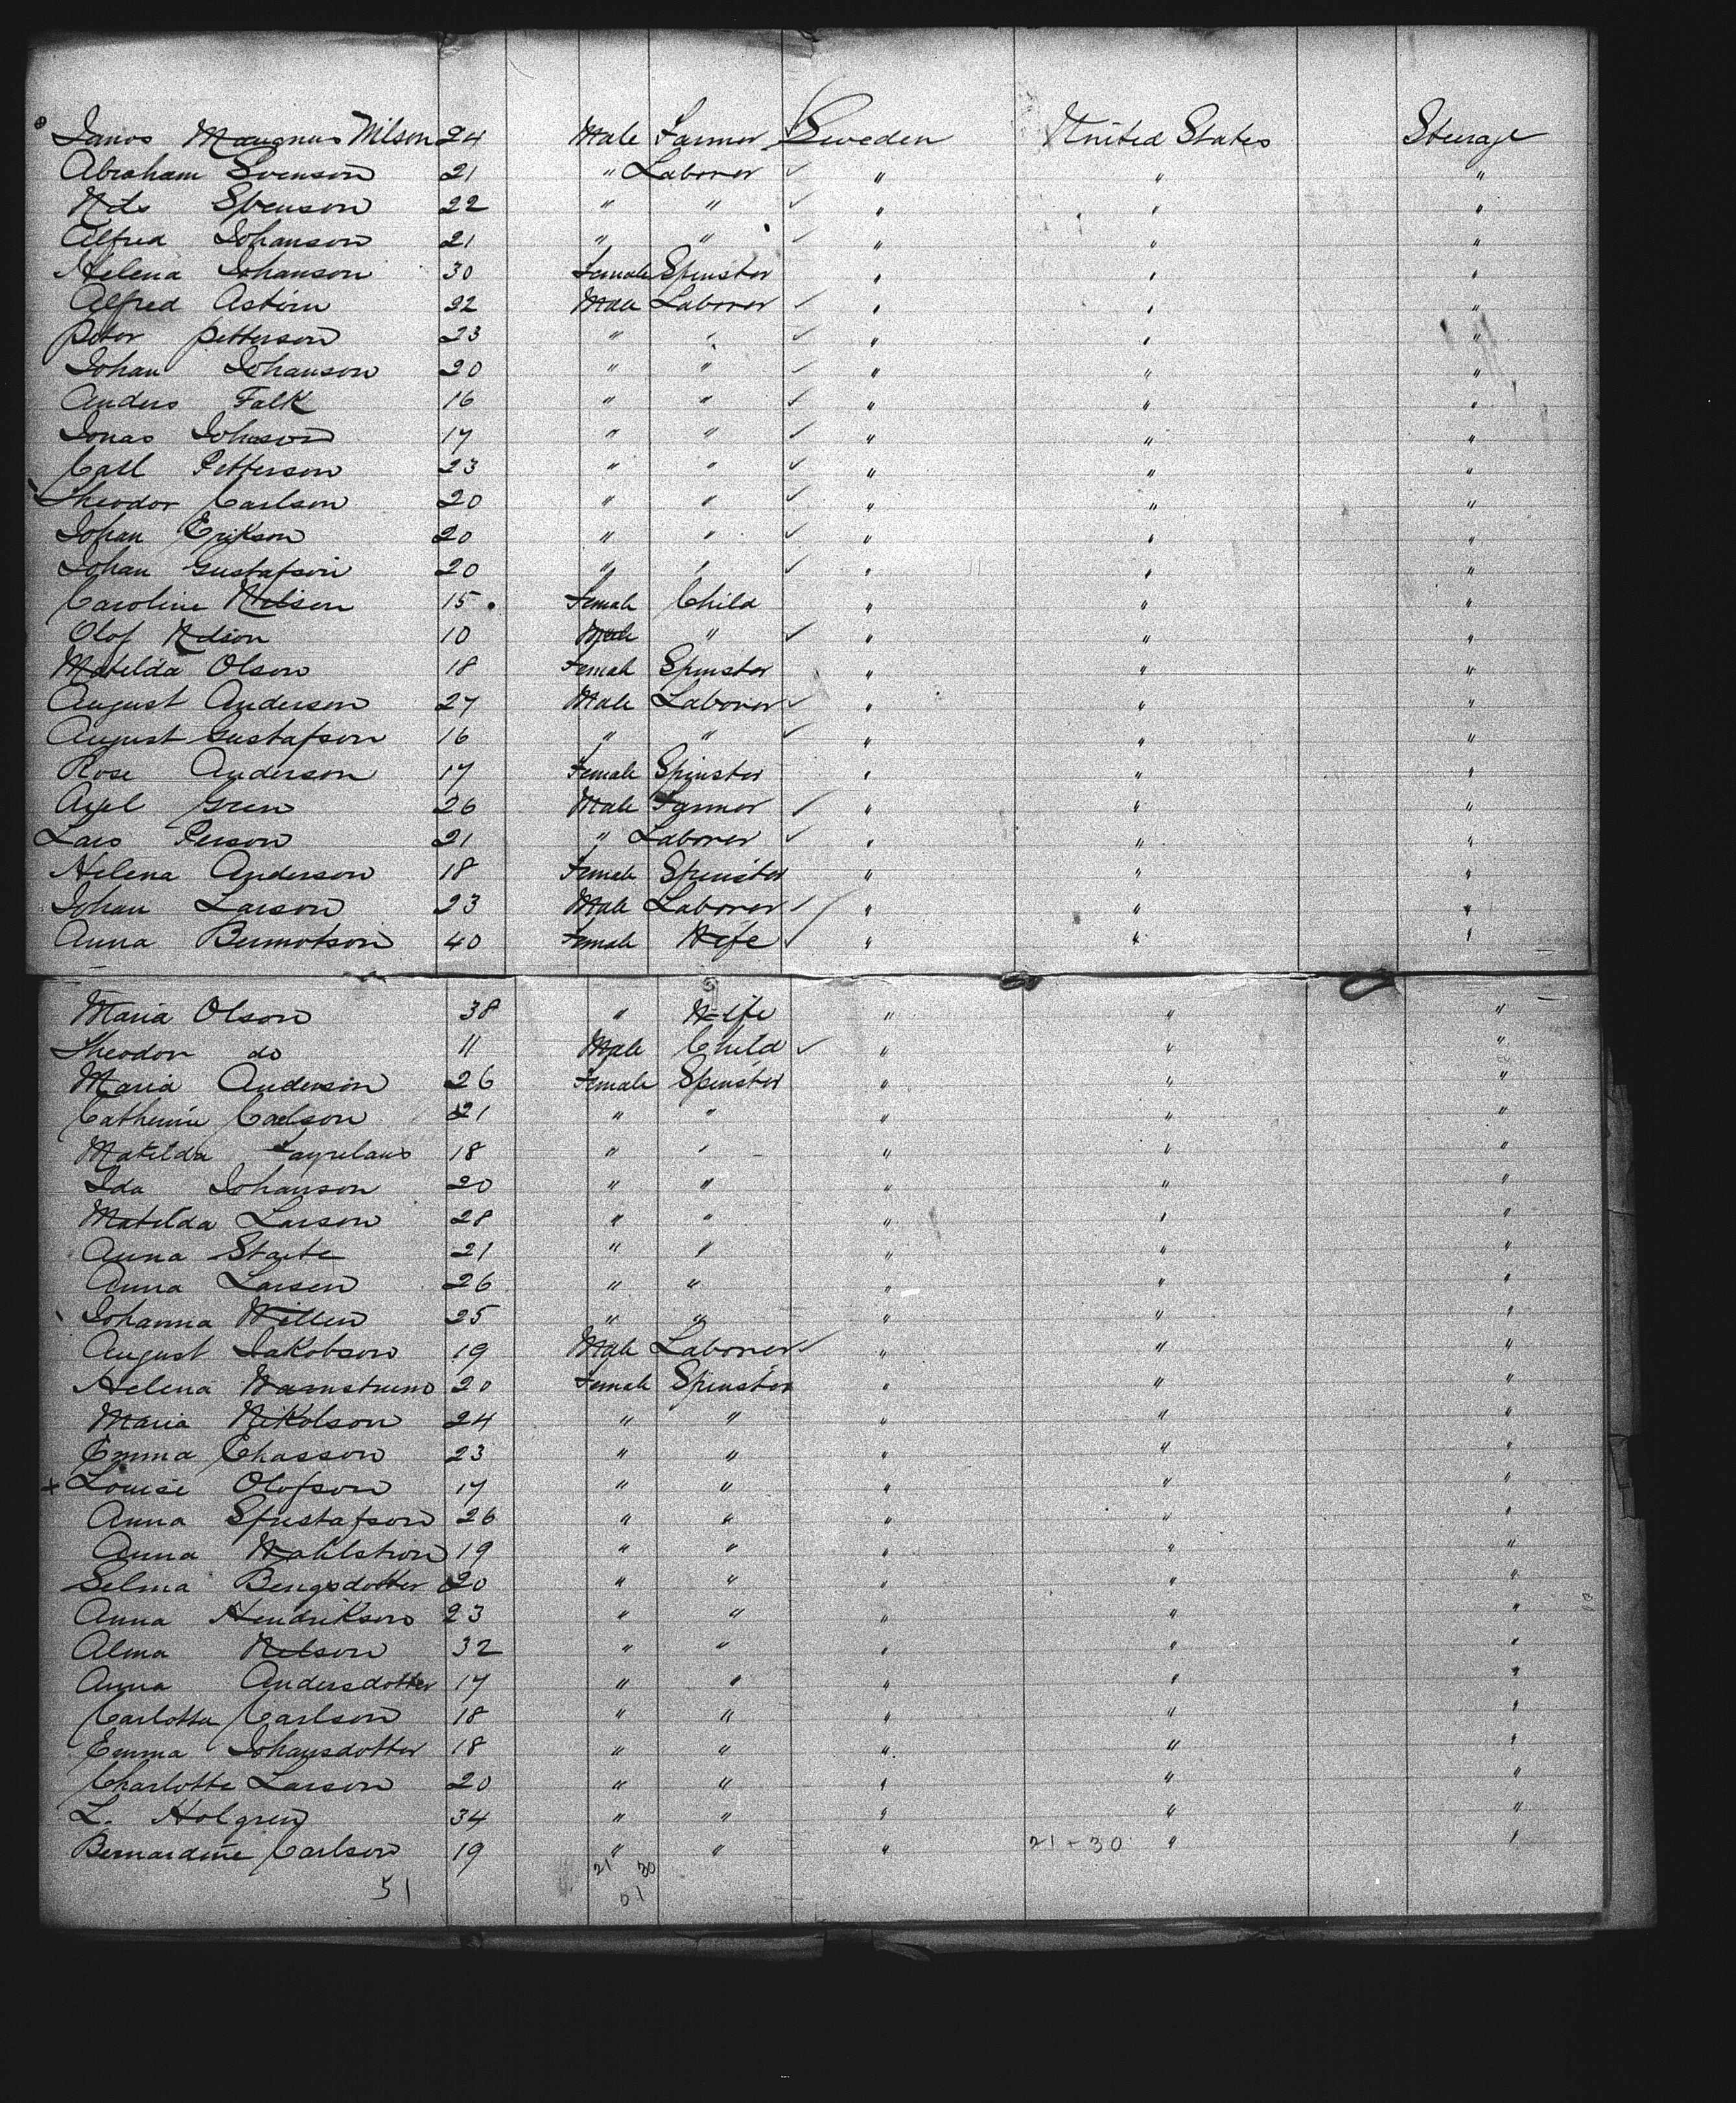 Janos Maugnus Nilson 24 Male Farmer Sweden United States Steerage
Abraham Svenson 21 " Laborer " " "
Nils Svenson 22 " " " " "
Alfred Johanson 21 " " " " "
Helena Johanson 30 Female Spinster " " "
Alfred 22 Male Laborer " " "
Peter Petterson 23 " " " " "
Johan Johanson 20 " " " " "
Anders Falk 16 " " " " "
Jonas Johnson 17 " " " " "
Carl Petterson 23 " " " " "
Theodor Carlson 20 " " " " "
Johan Erikson 20 " " " " "
Johan Gustafson 20 " " " " "
Caroline Nilson 15 Female Child " " "
Olof Nilson 10 Male " " " "
Matilda Olson 18 Female Spinster " " "
August Anderson 27 Male Laborer " " "
August Gustafson 16 " " " " "
Rose Anderson 17 Female Spinster " " "
Axel Gren 26 Male Farmer " " "
Lars Person 21 " Laborer " " "
Helena Anderson 18 Female Spinster " " "
Johan Larson 23 Male Laborer " " "
Anna 40 Female Wife " " "
Maria Olson 38 " Wife " " "
Theodor do 11 Male Child " " "
Maria Anderson 26 Female Spinster " " "
Catherine Carlson 21 " " " " "
Matilda 18 " " " " "
Ida Johanson 20 " " " " "
Matilda Larson 28 " " " " "
Anna 21 " " " " "
Anna Larsen 26 " " " " "
Johanna Willen 25 " " " " "
August Jakobson 19 Male Laborer " " "
Helena 20 Female Spinster " " "
Maria Nikolson 24 " " " " "
Emma Chasson 23 " " " " "
Louise Olofson 17 " " " " "
Anna Gustafson 26 " " " " "
Anna Wahlstrom 19 " " " " "
Selma Bengsdotter 20 " " " " "
Anna Hendrikson 23 " " " " "
Alma Nelson 32 " " " " "
Anna Andersdotter 17 " " " " "
Carlotta Carlson 18 " " " " "
Emma Johansdotter 18 " " " " "
Charlotte Larson 20 " " " " "
L. Holgren 34 " " " " "
Bernardine Carlson 19 " " " 21-30 " "
21 30
51 51